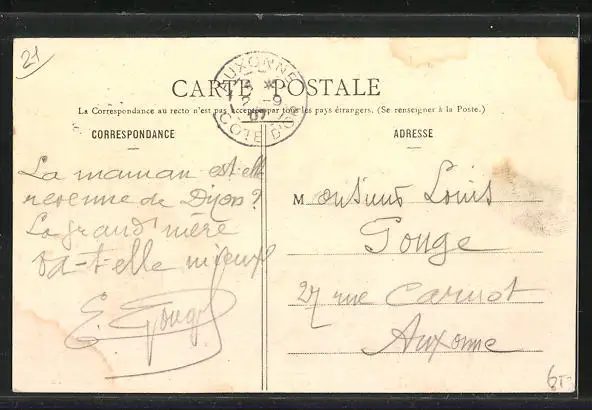 21
AUXONNE
* 
2 -9
07
CÔTE D'OR
CARTE POSTALE
La Correspondance au recto n'est pas acceptée par tous les pays étrangers. (Se renseigner à la Poste.)
CORRESPONDANCE
La maman est-elle
revenue de Dijon?
La grand'mère
va-t-elle mieux
E. Gouge
ADRESSE
Monsieur Louis
Gouge
27 rue Carnot
Auxonne